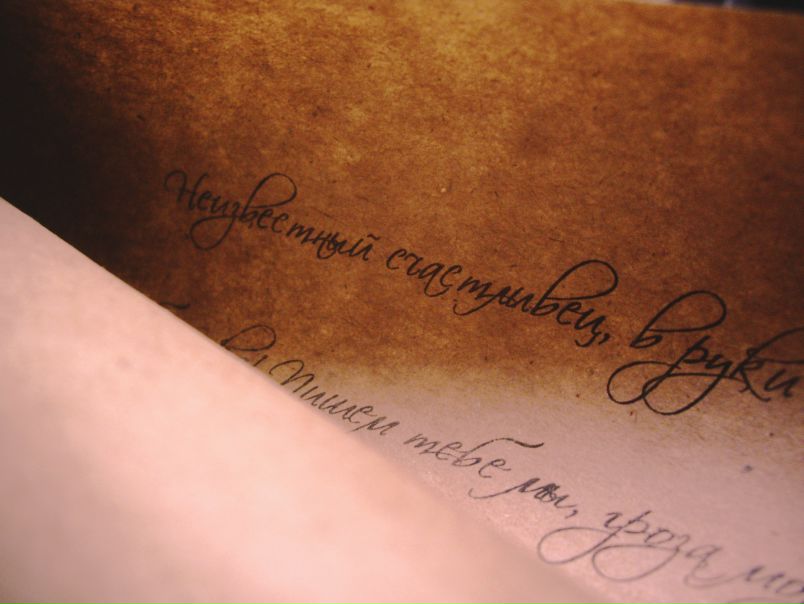 Неизвестный счастливец, в руки
Пишем тебе мы, гроза